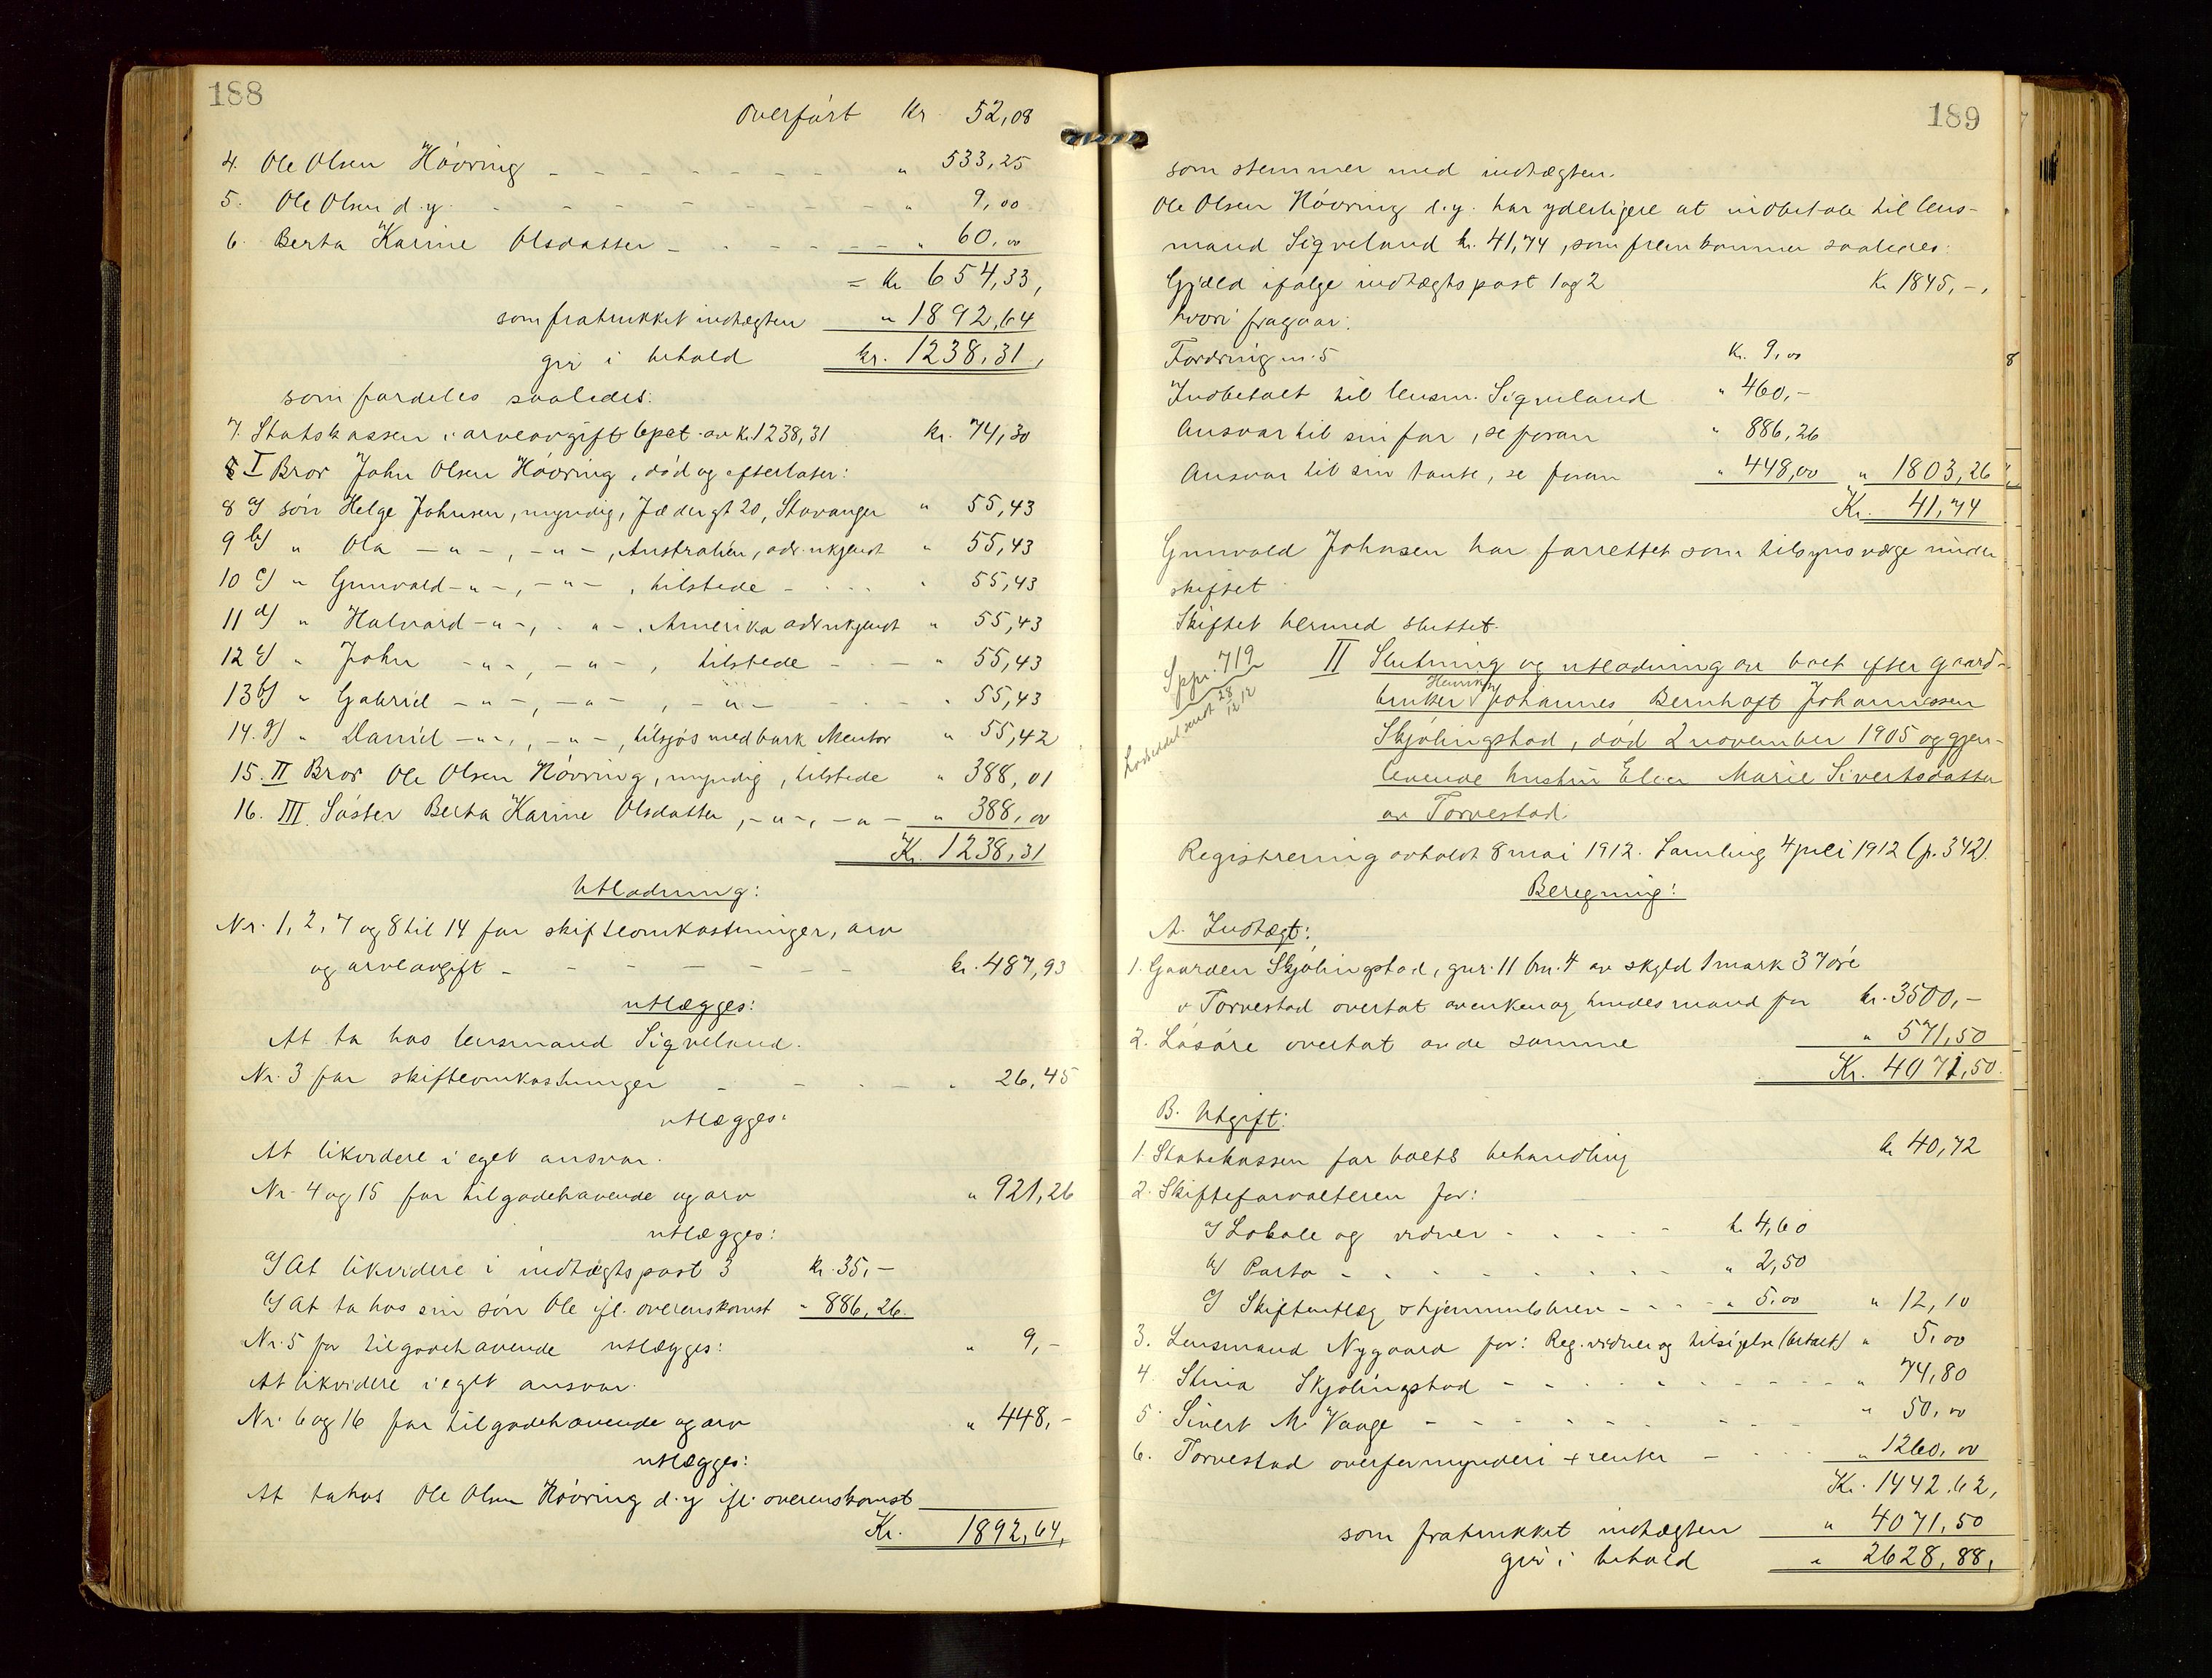 188
Overført Kr. 52,08
4. Ole Olsen Hövring - - - - - - - " 533,25
5. Ole Olsen d.y. - - - - - - - " 9,00
6. Berta Karine Olsdatter - - - - - - " 60,00
= Kr 654,33,
som fratrukket indtægten " 1892,64
gir i behold kr. 1238,31,
som fordeles saaledes:
7. Statskassen i arveavgift 6 pct. av kr. 1238,31 kr. 74,30
I Bror John Olsen Hövring, död og efterlater:
8 a) sön Helge Johnsen, myndig, Jædergt 20, Stavanger " 55,43
9 b) " Ola -"-, -"-, Australien, adr. ukjendt " 55,43
10 c) " Gunvald -"-, -"-, tilstede - . . . " 55,43
11 d) " Halvard -"-, -"-, Amerika adr ukjendt " 55,43
12 e) " John -"-, -"-, tilstede - . . - " 55,43
13 f) " Gabriel -"-, -"-, -"- - . . - " 55,43
14. g) " Daniel -"-, -"-, tilsjös med bark Mentor " 55,42
15. II Bror Ole Olsen Hövring, myndig, tilstede " 388,01
16. III. Söster Berta Karine Olsdatter, -"-, -"- " 388,00
Kr. 1238,31
Utlodning:
Nr. 1, 2, 7 og 8 til 14 for skifteomkostninger, arv
og arveavgift - - - - - - - kr. 487,93
utlægges:
At ta hos lensmand Sigveland.
Nr. 3 for skifteomkostninger - - . - " 26,45
utlægges:
At likvidere i eget ansvar.
Nr. 4 og 15 for tilgodehavende og arv " 921,26
utlægges:
a) At likvidere i indtægtspost 3 kr. 35,-
b) At ta hos sin sön Ole ifl. overenskomst " 886,26.
Nr. 5 for tilgodehavende utlægges: " 9,-
At likvidere i eget ansvar.
Nr. 6 og 16 for tilgodehavende og arv " 448,-
utlægges:
At ta hos Ole Olsen Hövring d.y ifl. overenskomst
Kr. 1892,64,
189
som stemmer med indtægten.
Ole Olsen Hövring d.y. har yderligere at indbetale til lens-
mand Sigveland kr. 41,74, som fremkommer saaledes:
Gjæld ifølge indtægtspost 1 og 2 Kr 1845,-,
hvori fragaar:
Fordring nr. 5 Kr. 9,00
Indbetalt til lensm. Sigveland " 460,-
Ansvar til sin far, se foran " 886,26
Ansvar til sin tante, se foran " 448,00 " 1803,26
Kr. 41,74
Gunvald Johnsen har forrettet som tilsynsværge under
skiftet.
Skiftet hermed sluttet.
Sppr. 719
28/12 12
II Slutning og utlodning av boet efter gaard-
bruker Henrik Johannes Bernhoft Johannessen
Skjölingstad, död 2 november 1905 og gjen-
levende hustru Elen Marie Sivertsdatter
av Torvestad.
Registrering avholdt 8 mai 1912. Samling 4 juli 1912 (p. 342).
Beregning:
A. Indtægt:
1. Gaarden Skjölingstad, gnr. 11 bnr. 4 av skyld 1 mark 37 øre
i Torvestad overtat av enken og hendes mand for kr. 3500,-
2. Lösöre overtat av de samme " 571,50
Kr. 4071,50.
B. Utgift:
1. Statskassen for boets behandling kr 40,72
2. Skifteforvalteren for:
a) Lokale og vidner - . . . - kr. 4,60
b) Porto - - - - - - - - " 2,50
c) Skifteutlæg & hjemmelsbrev - - - " 5,00 " 12,10
3. Lensmand Nygaard for: Reg. vidner og tilsigelse (betalt) " 5,00
4. Stina Skjölingstad - - - - - - - - " 74,80
5. Sivert M. Vaage - - - - - - - - " 50,00
6. Torvestad overformynderi + renter - . . . " 1260,00
Kr. 1442.62,
som fratrukket indtægten " 4071,50
gir i behold " 2628,88,